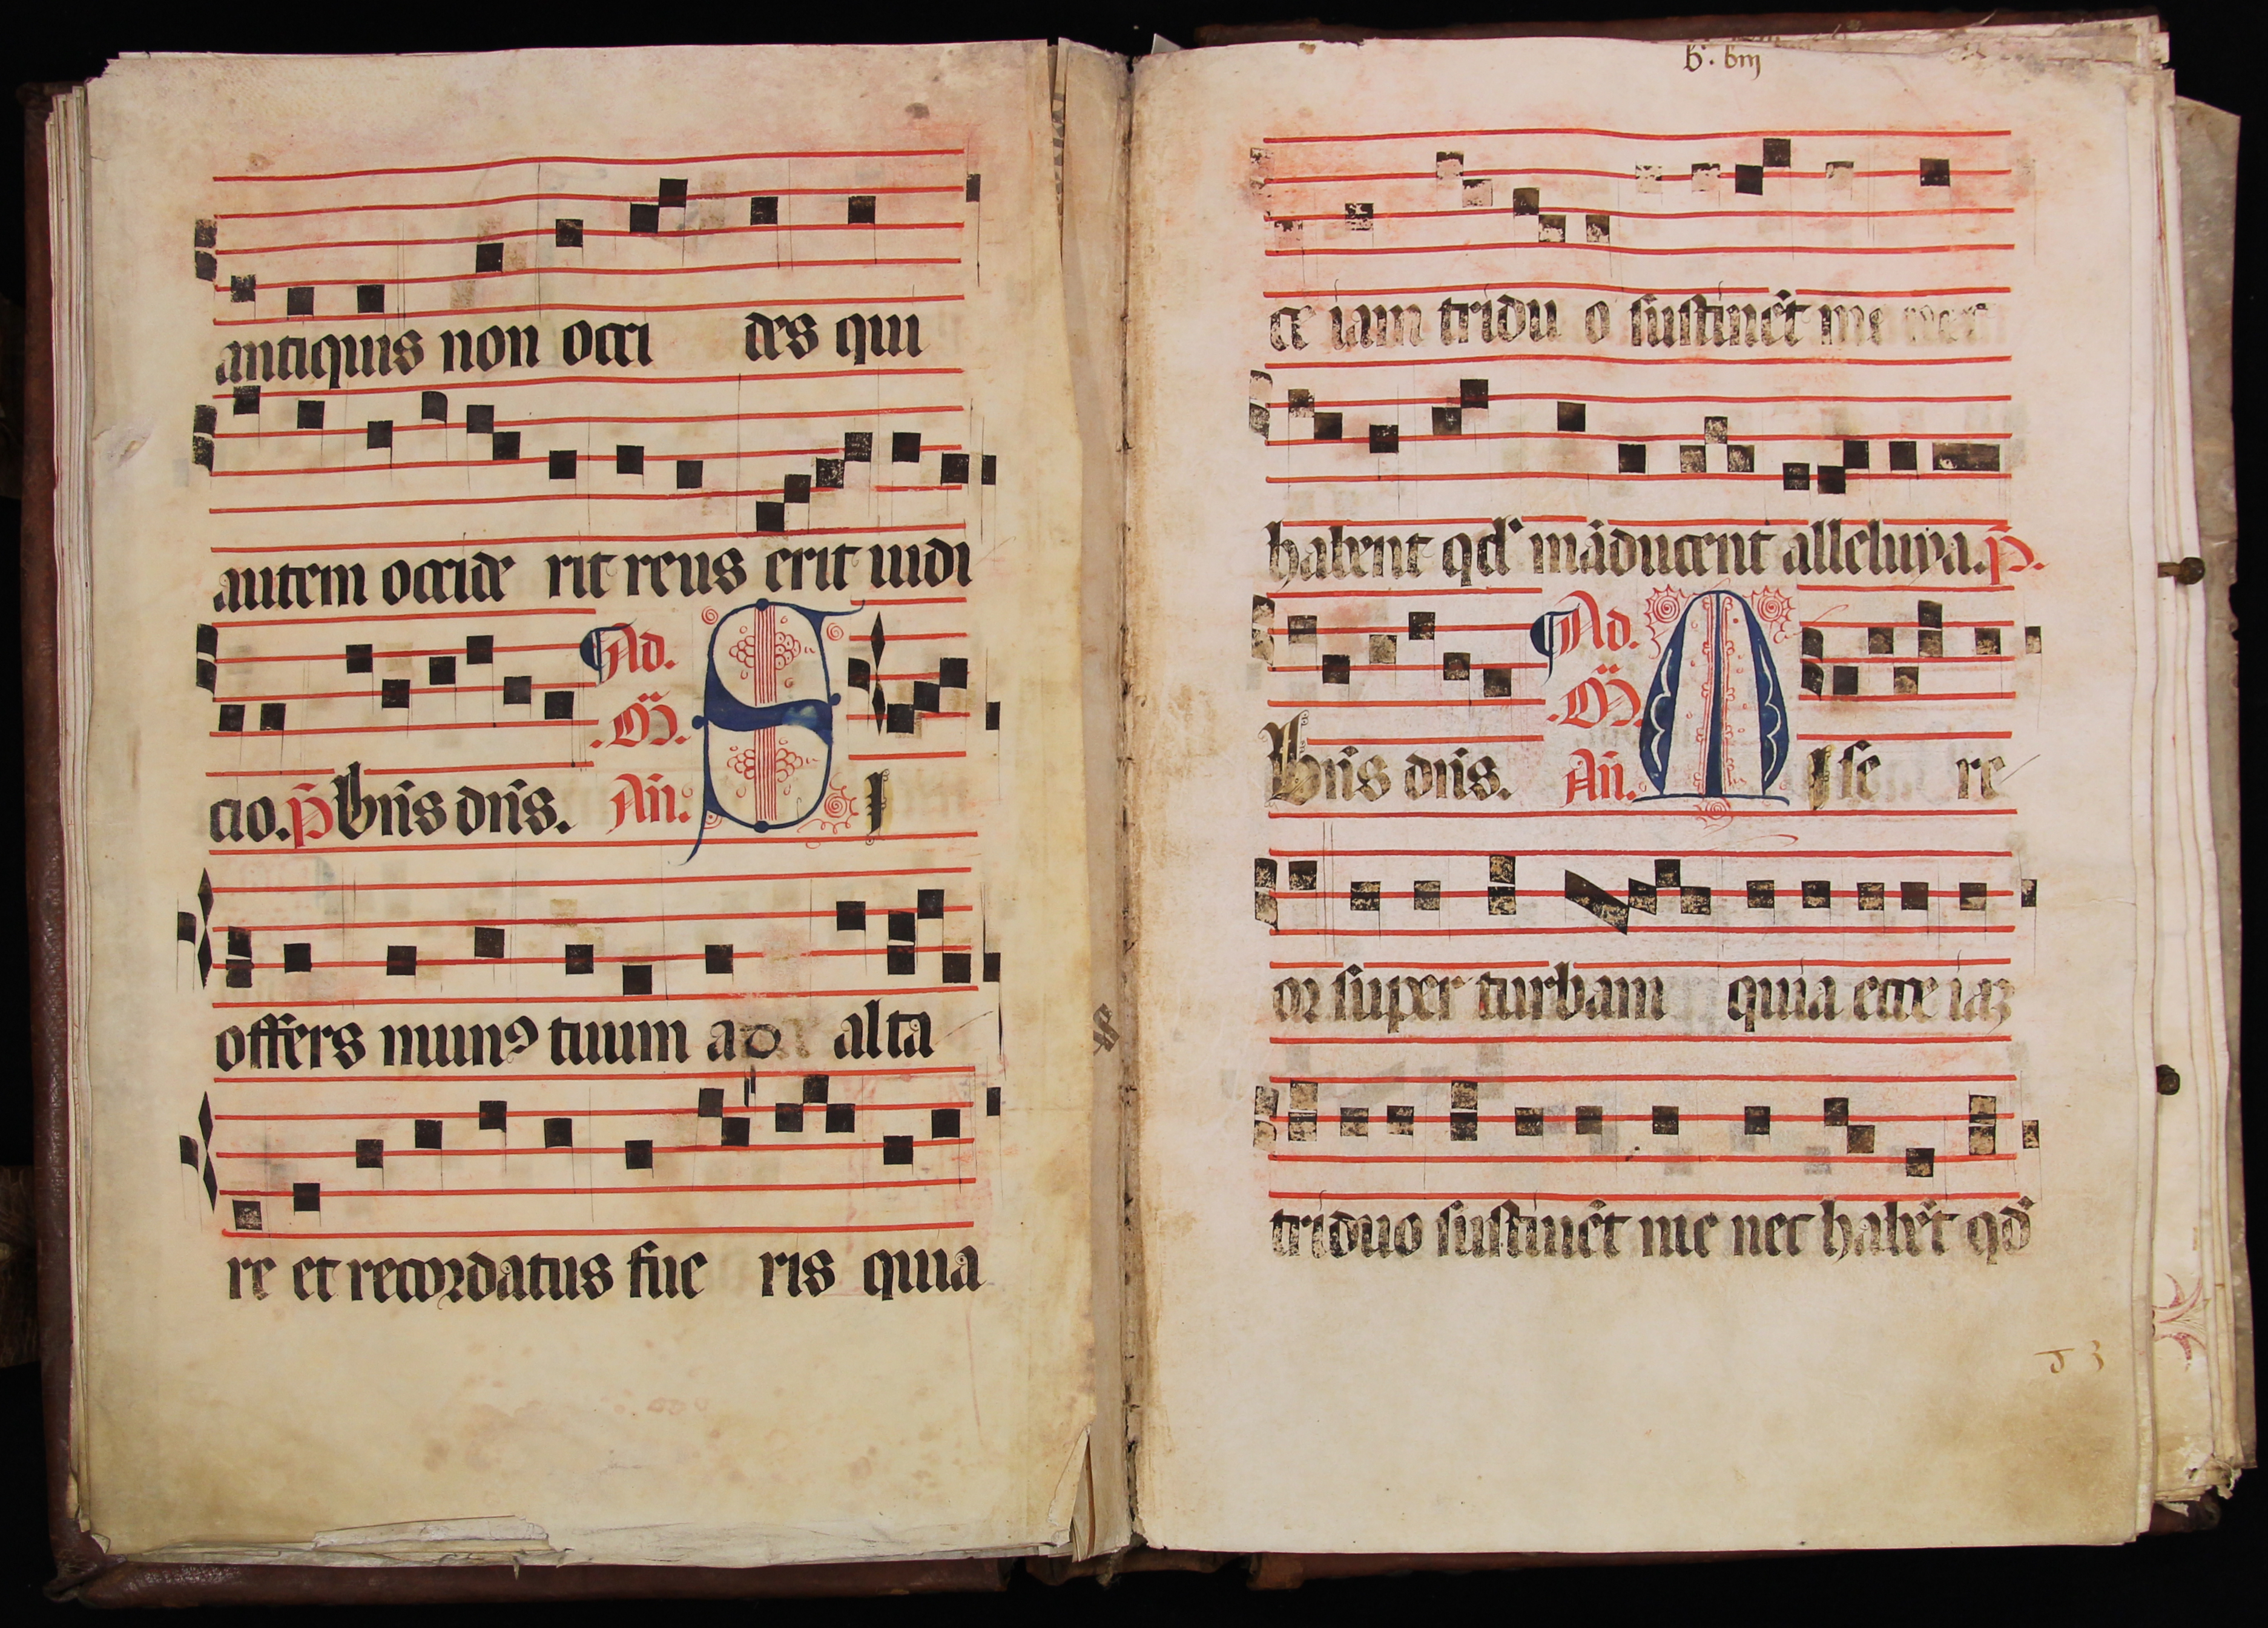 antiquis non occi des qui
autem occide rit reus erit iudi
Ad.
.Mͣ.
cio. p̄ Bn̄s dn̄s. An̄. S I
offers munꝯ tuum ad alta
re et recordatus fue ris quia
ce iam tridu o sustinēt me nec
habent qd' māducent alleluya. p̄.
Ad.
.Mͣ.
Bn̄s dn̄s. An̄. M I se re
or super turbam quia ecce iaꝫ
triduo sustinēt me nec habēt qd'